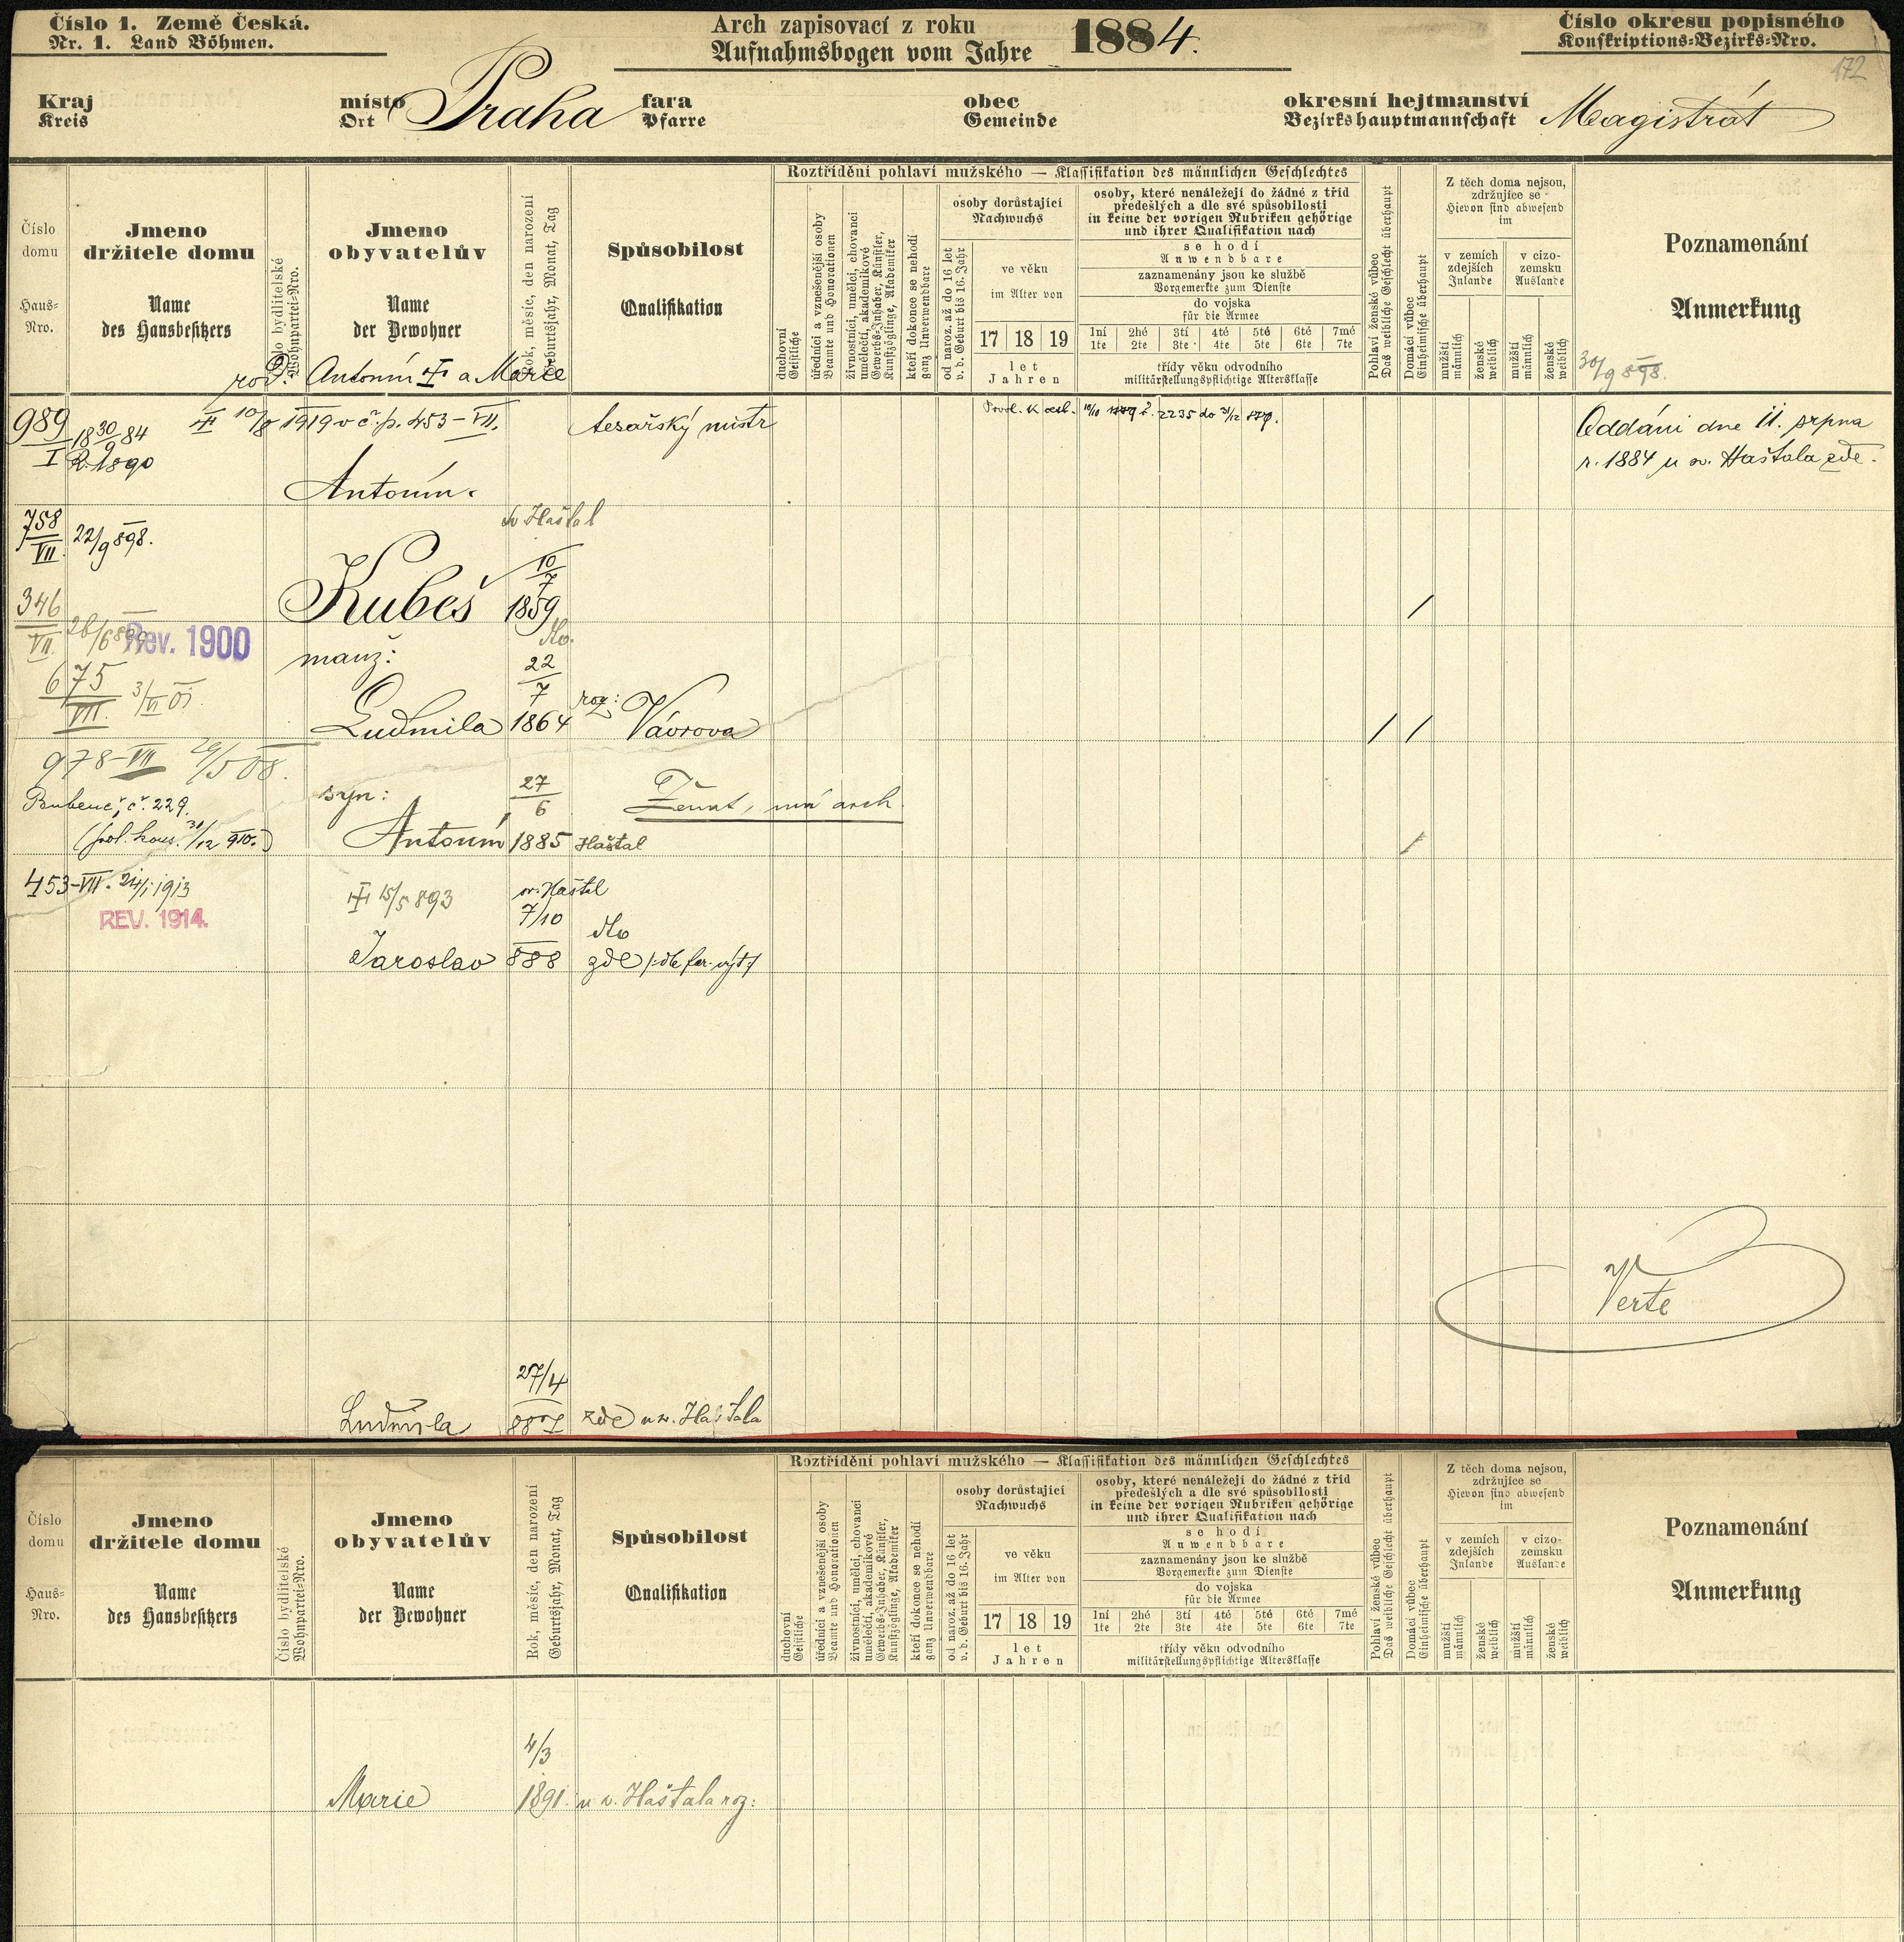 Číslo 1. Země Česká.
Nr. 1. Land Böhmen.
Arch zapisovací z roku
Aufnahmsbogen vom Jahre 1884.
Číslo okresu popisného
Konskriptions-Bezirks-Nro.
172
Kraj
Kreis
místo
Ort
Praha
fara
Pfarre
obec
Gemeinde
okresní hejtmanství
Bezirkshauptmannschaft
Magistrát
Číslo domu
Haus-Nro.
Jmeno držitele domu
Name des Hausbesitzers
Číslo bydlitelské
Wohnpartei-Nro.
Jmeno obyvatelův
Name der Bewohner
Rok, měsíc, den narození
Geburtsjahr, Monat, Tag
Spůsobilost
Qualifikation
Roztřídění pohlaví mužského — Klassifikation des männlichen Geschlechtes
duchovní
Geistliche
úředníci a vznešenější osoby
Beamte und Honorationen
živnostníci, umělci, chovanci umělečtí, akademikové
Gewerbs-Inhaber, Künstler, Kunstzöglinge, Akademiker
kteří dokonce se nehodí
ganz Unverwendbare
osoby dorůstající
Nachwuchs
od naroz. až do 16 let
v. d. Geburt bis 16. Jahr
ve věku
im Alter von
17 18 19
let
Jahren
osoby, které nenáležejí do žádné z tříd
předešlých a dle své spůsobilosti
in keine der vorigen Rubriken gehörige
und ihrer Qualifikation nach
se hodí
Anwendbare
zaznamenány jsou ke službě
Vorgemerkte zum Dienste
do vojska
für die Armee
1ní 2hé 3tí 4té 5té 6té 7mé
1te 2te 3te 4te 5te 6te 7te
třídy věku odvodního
militärstellungspflichtige Altersklasse
Pohlaví ženské vůbec
Das weibliche Geschlecht überhaupt
Domácí vůbec
Einheimische überhaupt
Z těch doma nejsou,
zdržujíce se
Hievon sind abwesend
im
v zemích zdejších
Inlande
v cizo-zemsku
Auslande
mužští
männlich
ženské
weiblich
mužští
männlich
ženské
weiblich
Poznamenání
Anmerkung
30/9 898.
rod: Antonín † a Marie
989
I
18 30/9 84
R. 1890
† 10/8 1919 v č. p. 453-VII.
tesařský mistr
Povol. k cest. 10/10 č. 2235 do 31/12
Oddáni dne 11. srpna
r. 1884 u sv. Haštala zde.
Antonín
758
VII.
22/9 898.
sv Haštal
Kubeš
10/7
1859
346
VII.
26/6 899
Rev. 1900
manž:
dto.
22/7
675
VII.
3/VI 01.
Ludmila
1864
roz: Vávrova
978-VII 29/5 08.
Bubeneč č. 229.
(pol. kons. 31/12 910.)
syn:
27/6
Ženat, má arch.
Antonín
1885
Haštal
453-VII. 24/1 1913
REV. 1914.
† 15/5 893
sv. Haštal
7/10
dto
Jaroslav
888
zde /: dle far. výt :/
Verte
27/4
Ludmila
887
zde u sv. Haštala
Číslo domu
Haus-Nro.
Jmeno držitele domu
Name des Hausbesitzers
Číslo bydlitelské
Wohnpartei-Nro.
Jmeno obyvatelův
Name der Bewohner
Rok, měsíc, den narození
Geburtsjahr, Monat, Tag
Spůsobilost
Qualifikation
Roztřídění pohlaví mužského — Klassifikation des männlichen Geschlechtes
duchovní
Geistliche
úředníci a vznešenější osoby
Beamte und Honorationen
živnostníci, umělci, chovanci umělečtí, akademikové
Gewerbs-Inhaber, Künstler, Kunstzöglinge, Akademiker
kteří dokonce se nehodí
ganz Unverwendbare
osoby dorůstající
Nachwuchs
od naroz. až do 16 let
v. d. Geburt bis 16. Jahr
ve věku
im Alter von
17 18 19
let
Jahren
osoby, které nenáležejí do žádné z tříd
předešlých a dle své spůsobilosti
in keine der vorigen Rubriken gehörige
und ihrer Qualifikation nach
se hodí
Anwendbare
zaznamenány jsou ke službě
Vorgemerkte zum Dienste
do vojska
für die Armee
1ní 2hé 3tí 4té 5té 6té 7mé
1te 2te 3te 4te 5te 6te 7te
třídy věku odvodního
militärstellungspflichtige Altersklasse
Pohlaví ženské vůbec
Das weibliche Geschlecht überhaupt
Domácí vůbec
Einheimische überhaupt
Z těch doma nejsou,
zdržujíce se
Hievon sind abwesend
im
v zemích zdejších
Inlande
v cizo-zemsku
Auslande
mužští
männlich
ženské
weiblich
mužští
männlich
ženské
weiblich
Poznamenání
Anmerkung
4/3
Marie
1891.
u sv. Haštala roz: